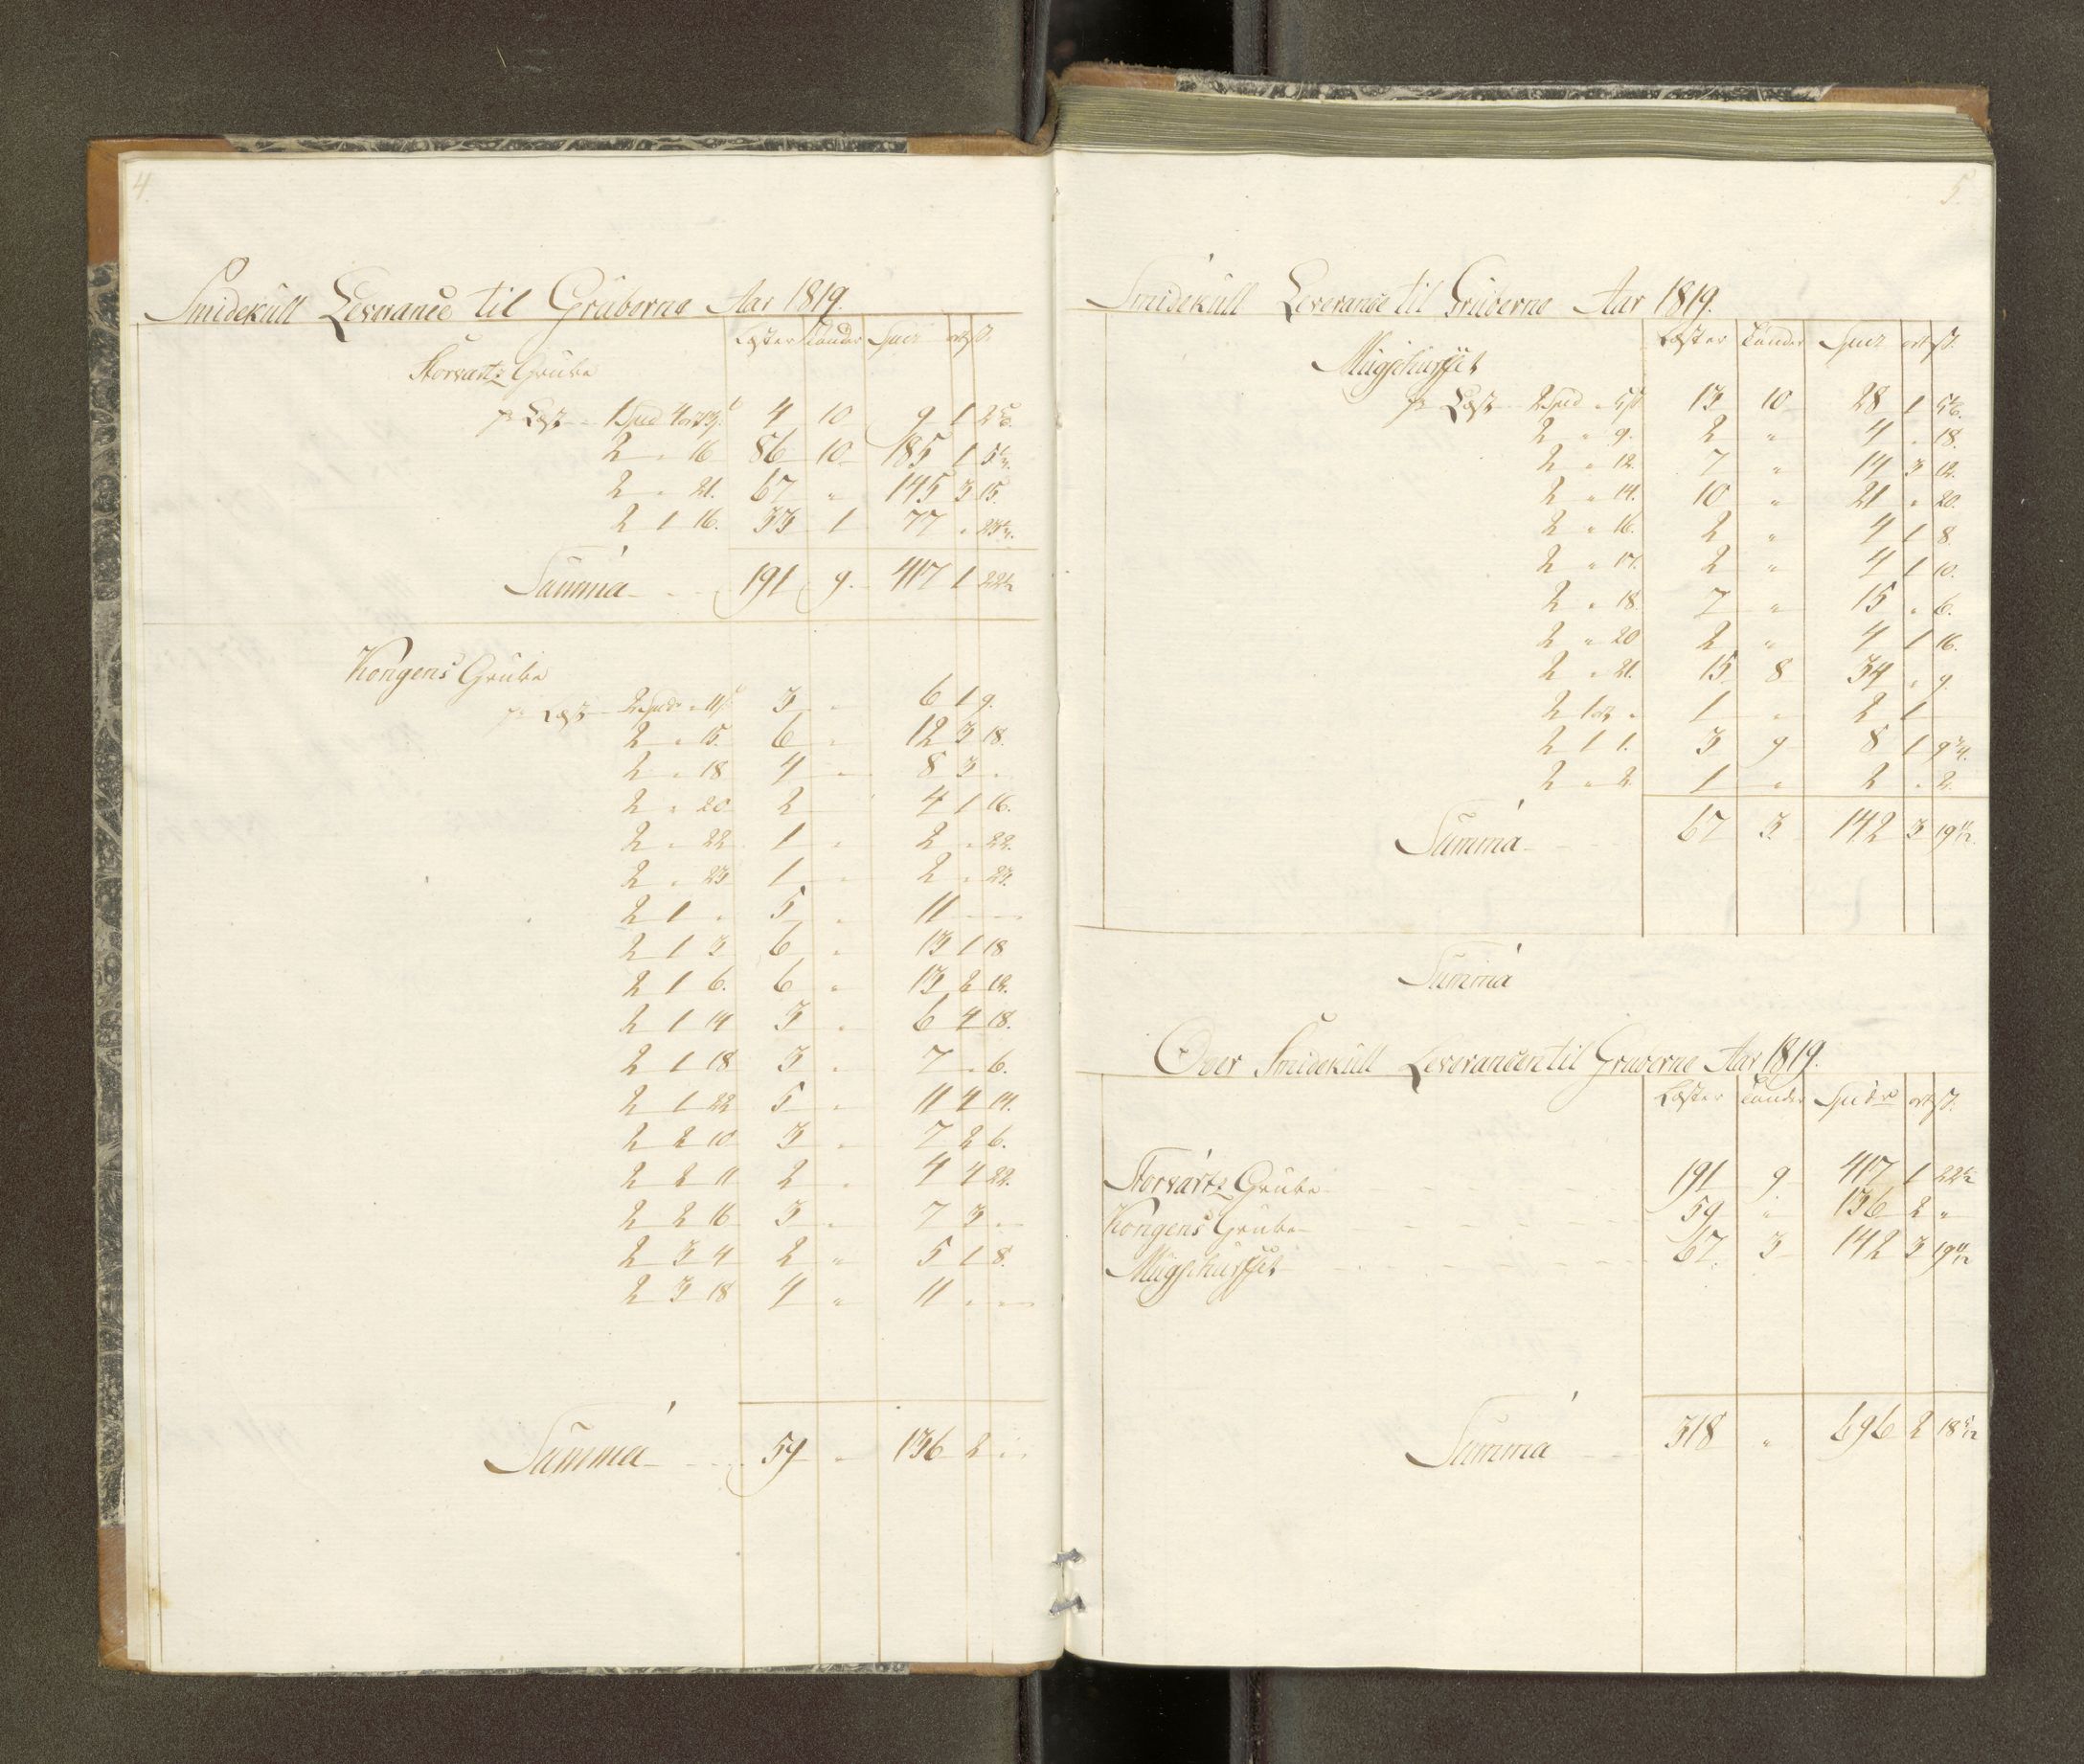 4.
Smidekull Leverance til Gruberne Aar 1819.
Læster Tønder Spdr ort ß.
Storvartz Grube
pr Læst 1 Spd 4 ort 23 ß 4 10 9 1 2 5/6.
2 " 16 86 10 185 1 5 1/3.
2 " 21. 67 " 145 3 15.
2 1 16. 33 1 77 "
Summa 191 9. 417 1 22 1/2
Kongens Grube
pr Læst 2 Spdr " 11 ß 3 " 6 1 9.
2 " 15. 6 " 12 3 18.
2 " 18 4 " 8 3 "
2 " 20. 2 " 4 1 16.
2 " 22 1 " 2 " 22.
2 " 23 1 " 2 " 23.
2 1 " 5 " 11
2 1 3 6 " 13 1 18
2 1 6. 6 " 13 2 12.
2 1 14 3 " 6 4 18.
2 1 18 3 " 7 " 6.
2 1 22 5 " 11 4 14.
2 2 10 3 " 7 2 6.
2 2 11 2 " 4 4 22.
2 2 16 3 " 7 3 "
2 3 4 2 " 5 1 8.
2 3 18 4 " 11 " "
Summa 59 " 136 2 "
5.
Smidekull Leverance til Gruberne Aar 1819.
Læster Tønder Spdr ort ß.
Mugghusset
pr Læst 2 Spd " 5 ß 13 10 28 1 5 5/6.
2 " 9. 2 " 4 " 18.
2 " 12. 7 " 14 3 12.
2 " 14. 10 " 21 " 20.
2 " 16. 2 " 4 1 8
2 " 17. 2 " 4 1 10.
2 " 18. 7 " 15 " 6.
2 " 20 2 " 4 1 16.
2 " 21. 15 8 34 " 9.
2 1 ort " 1 " 2 1
2 1 1. 3 9 8 1 9 3/4.
2 " 2. 1 " 2 " 2.
Summa 67 3 142 3 19 11/12.
Summa
Over Smidekull Leverancen til Gruberne Aar 1819.
Læster Tønder Spdr ort ß.
Storvartz Grube 191 9 417 1 22 1/2
Kongens Grube 59 " 136 2 "
Mugghusset 67. 3 142 3 19 11/12
Summa 318 " 696 2 18 5/12